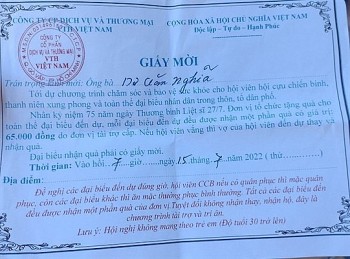 CÔNG TY CP DỊCH VỤ VÀ THƯƠNG MẠI
VTH VIỆT NAM
CỘNG HÒA XÃ HỘI CHỦ NGHĨA VIỆT NAM
Độc lập - Tự do - Hạnh Phúc
CÔNG TY
CỔ PHẦN
DỊCH VỤ VÀ THƯƠNG MẠI
VTH
VIỆT NAM
GIẤY MỜI
Trân trọng kính mời: Ông bà Nghĩa
Tới dự chương trình chăm sóc và bảo vệ sức khỏe cho hội viên hội cựu chiến binh,
thanh niên xung phong và toàn thể đại biểu nhân dân trong thôn, tổ dân phố.
Nhân kỷ niệm 75 năm ngày Thương binh Liệt sĩ 27/7. Đơn vị tổ chức tặng quà cho
toàn thể đại biểu đến dự, mỗi đại biểu đến dự đều được nhận một phần quà có giá trị:
65.000 đồng do đơn vị tài trợ cấp. Nếu hội viên vắng thì vợ của hội viên đến dự thay và
nhận quà.
Đại biểu nhận quà phải có giấy mời.
Thời gian: Vào hồi...7...giờ......ngày 15 tháng 7 năm 2022 (thứ..................)
Địa điểm:
Đề nghị các đại biểu đến dự đúng giờ, hội viên CCB nếu có quân phục thì mặc quân
phục, còn các đại biểu khác thì ăn mặc thường phục bình thường. Tất cả các đại biểu đến
đều được nhận một phần quà của đơn vị Tuyệt đối không nhận thay, nhận hộ, đây là
chương trình tài trợ và tri ân.
Lưu ý: Hội nghị không mang theo trẻ em (Độ tuổi 30 trở lên)